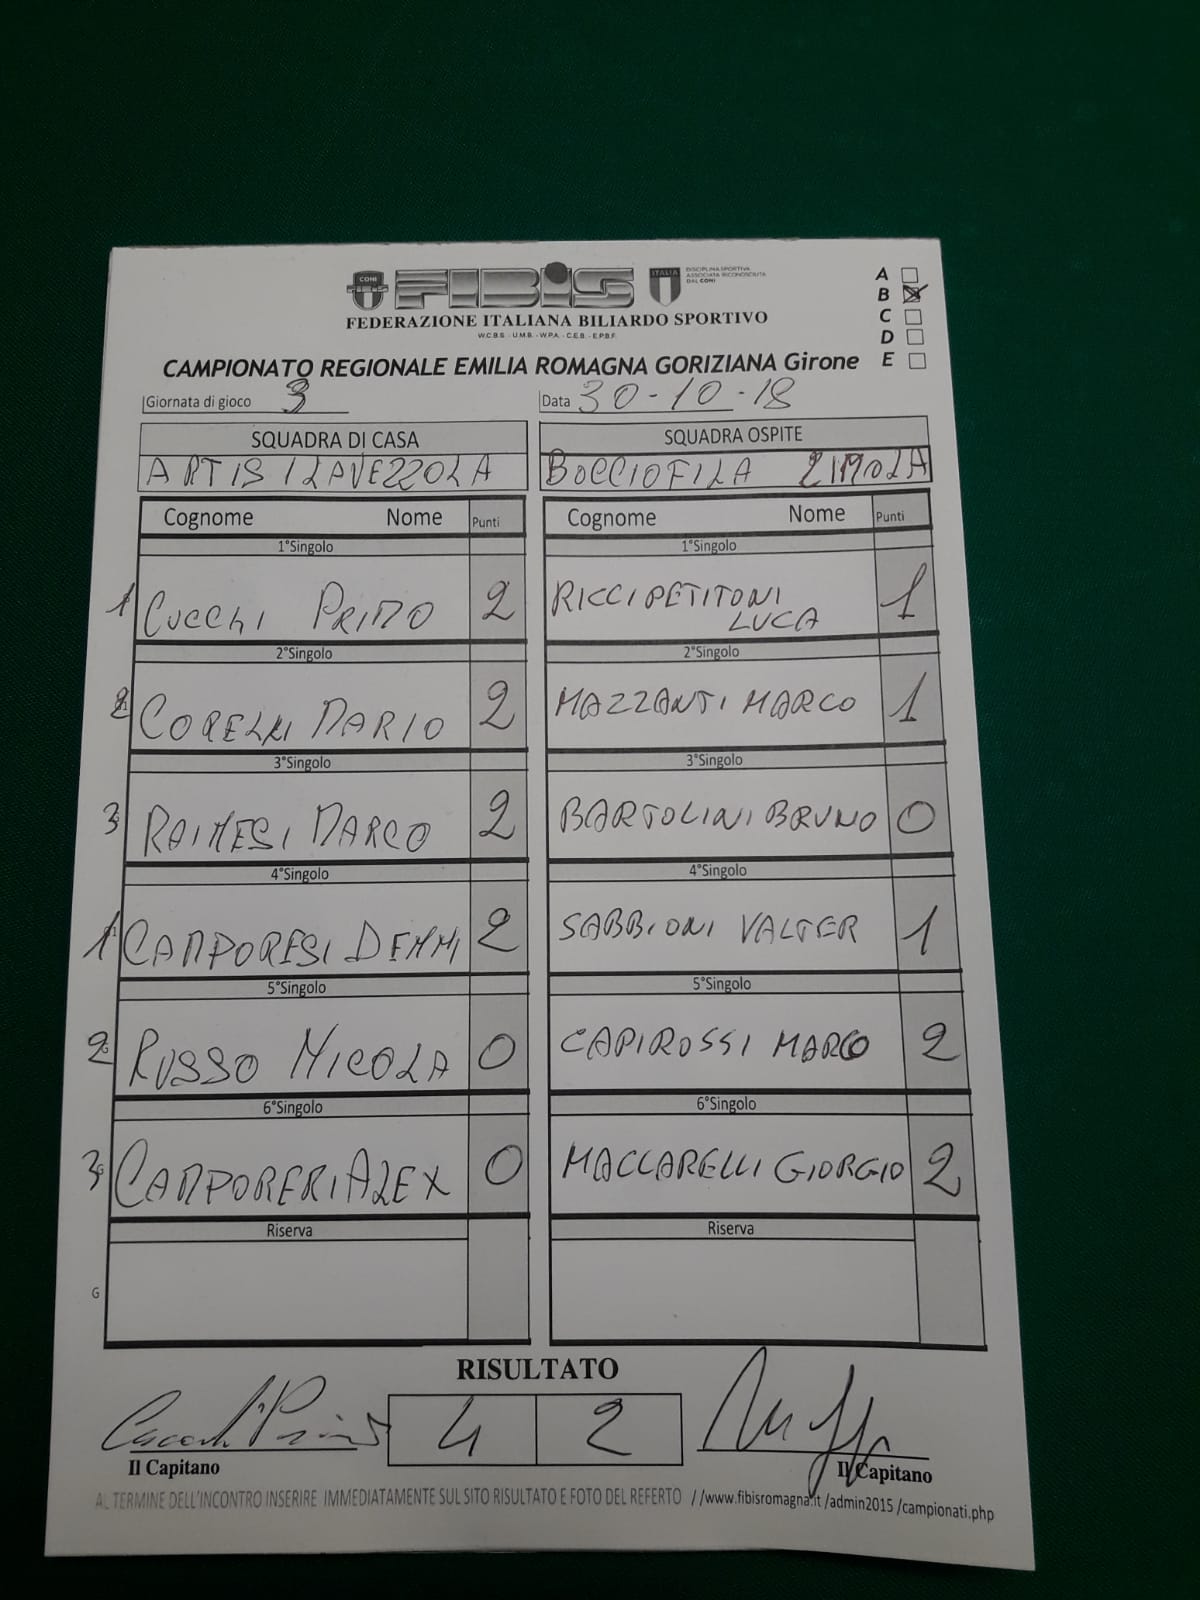 CONI
FIBIS
ITALIA
DISCIPLINA SPORTIVA
ASSOCIATA RICONOSCIUTA
DAL CONI
FEDERAZIONE ITALIANA BILIARDO SPORTIVO
W.C.B.S. - U.M.B. - W.P.A. - C.E.B. - E.P.B.F.
A
B
C
D
E
CAMPIONATO REGIONALE EMILIA ROMAGNA GORIZIANA Girone
Giornata di gioco 3 Data 30-10-18
SQUADRA DI CASA SQUADRA OSPITE
ARTIS 1 LAVEZZOLA BOCCIOFILA 2 IMOLA
Cognome Nome Punti Cognome Nome Punti
1°Singolo 1°Singolo
1 CUCCHI PRIMO 2 RICCIPETITONI LUCA 1
2°Singolo 2°Singolo
2 CORELLI MARIO 2 MAZZANTI MARCO 1
3°Singolo 3°Singolo
3 RAINESI MARCO 2 BARTOLINI BRUNO 0
4°Singolo 4°Singolo
1 CAMPORESI DENNI 2 SABBIONI VALTER 1
5°Singolo 5°Singolo
2 RUSSO NICOLA 0 CAPIROSSI MARCO 2
6°Singolo 6°Singolo
3 CAMPORERI ALEX 0 MACCARELLI GIORGIO 2
Riserva Riserva
G
RISULTATO
4 2
Il Capitano Il Capitano
AL TERMINE DELL'INCONTRO INSERIRE IMMEDIATAMENTE SUL SITO RISULTATO E FOTO DEL REFERTO //www.fibisromagna.it /admin2015 /campionati.php